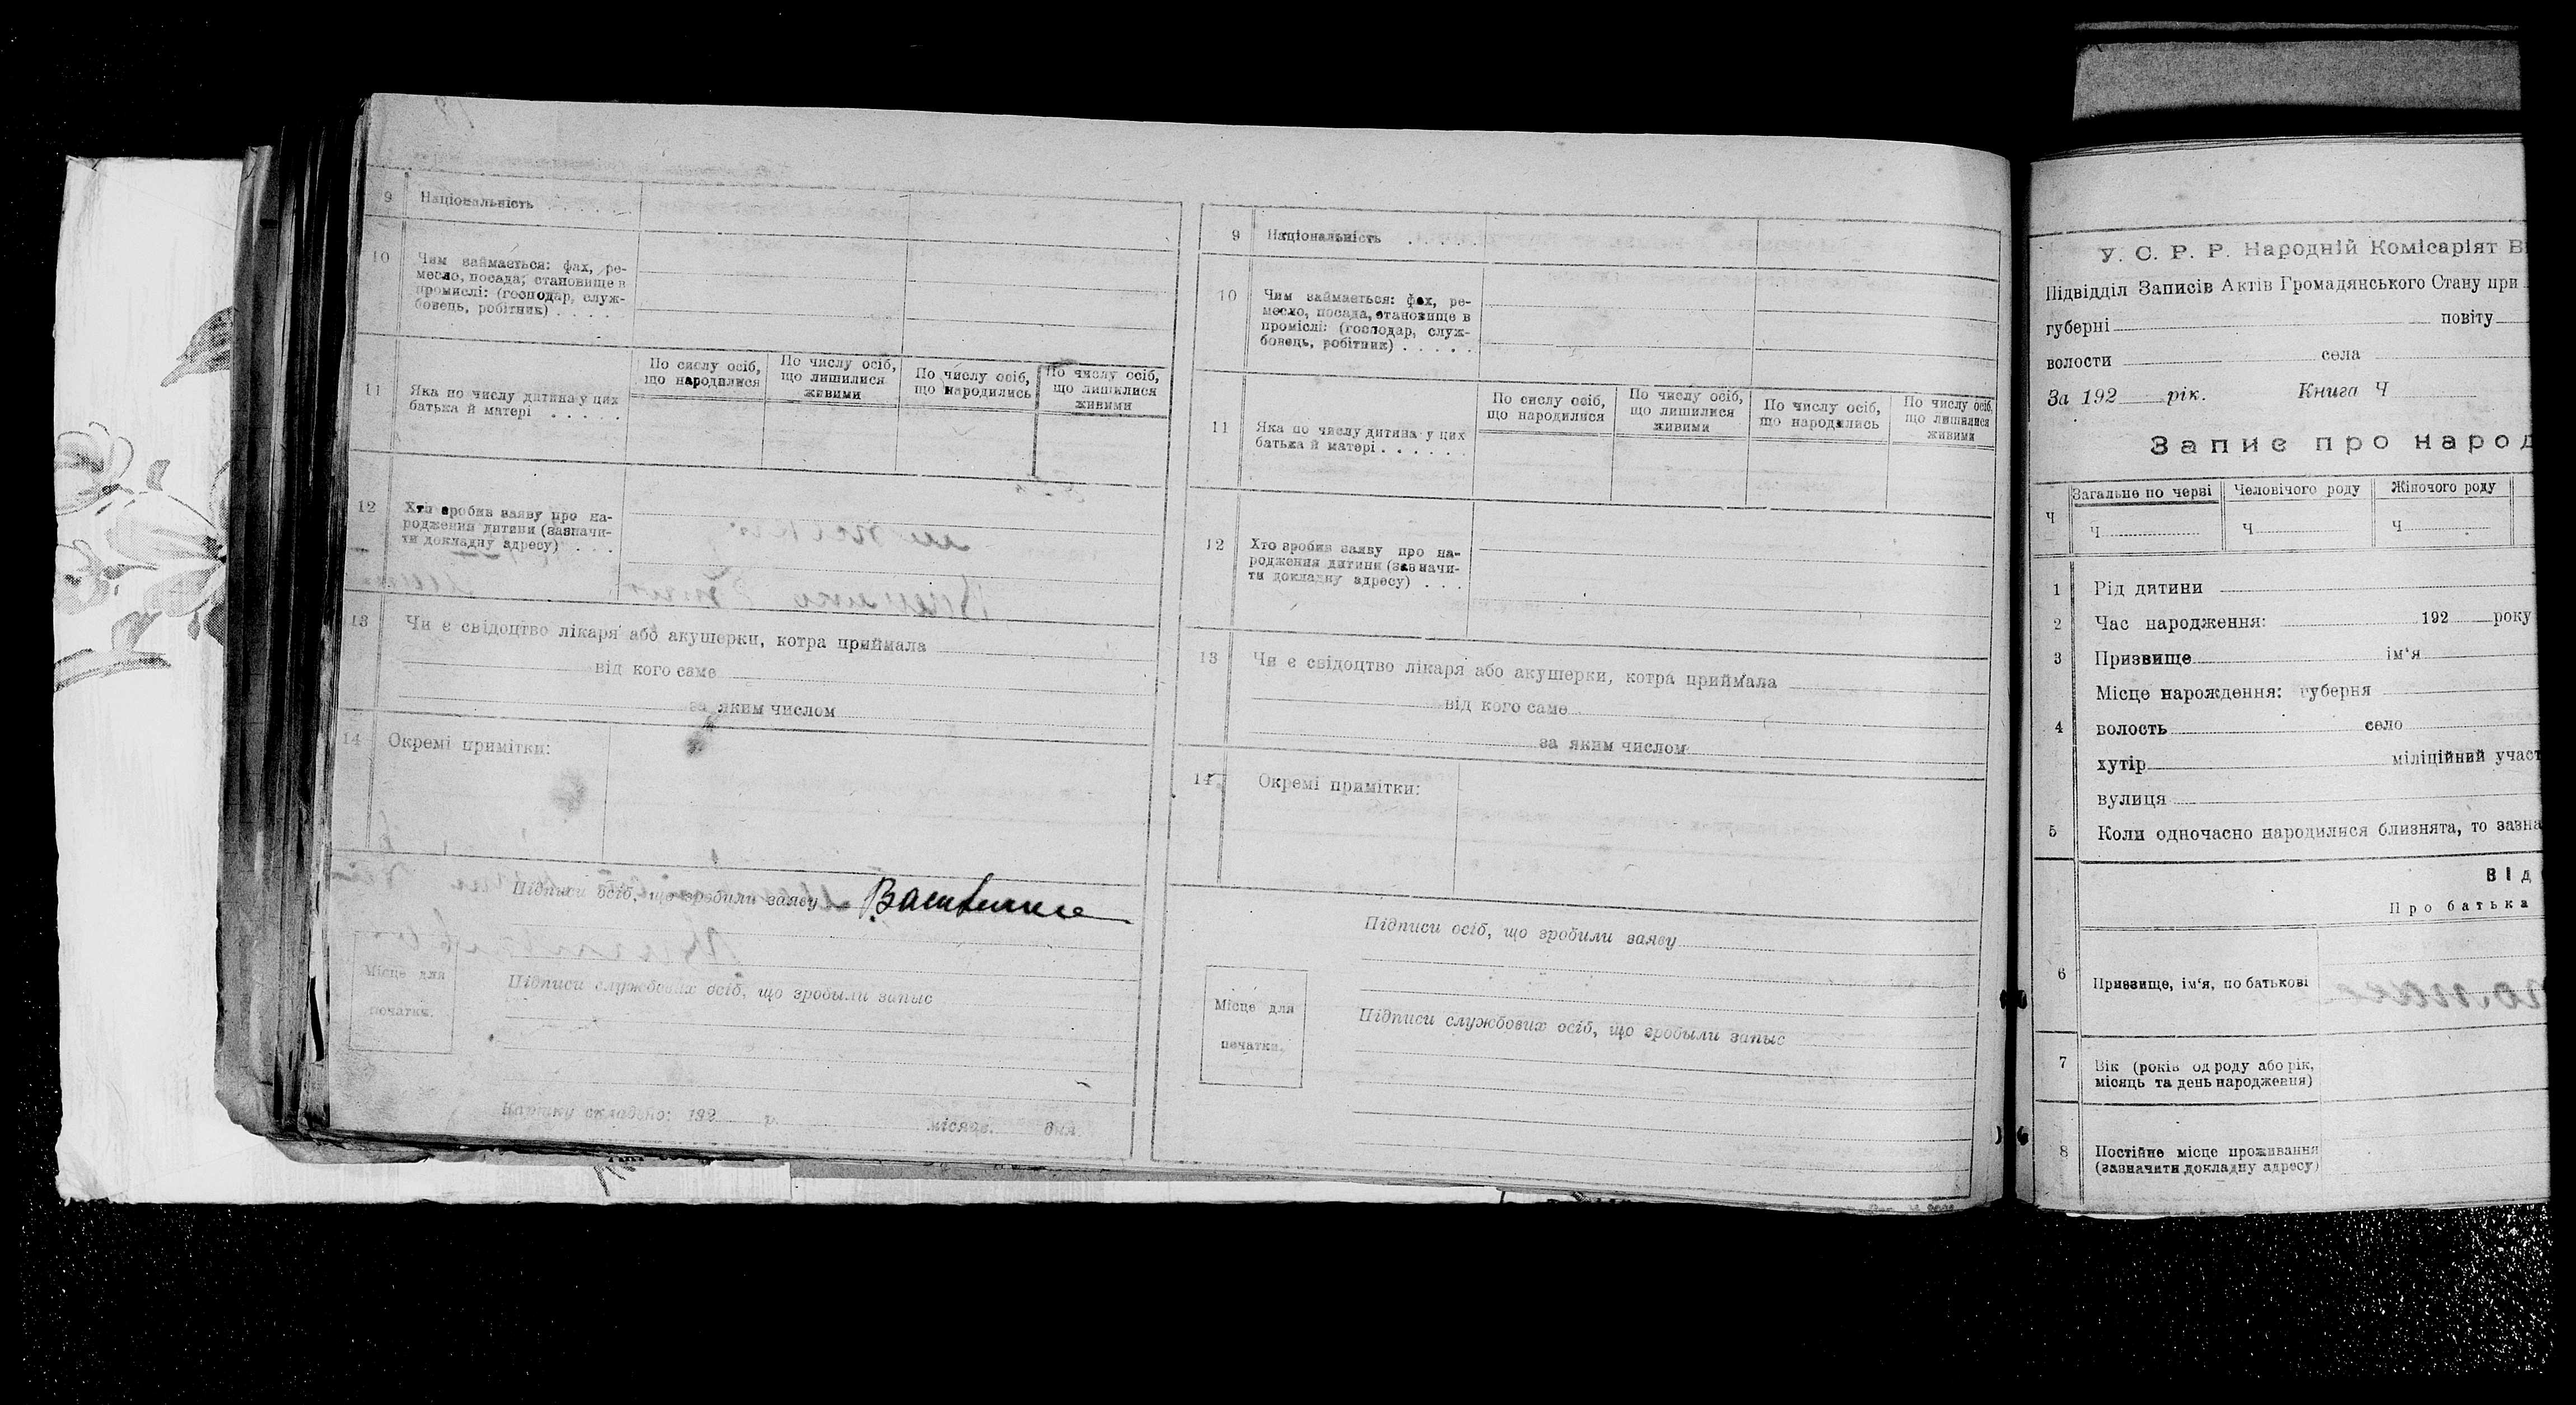 9 Національність . . . . . .
10 Чим займається: фах, ре-
месло, посада, становище в
промислі: (господар, служ-
бовець, робітник) . . . .
11 Яка по числу дитина у цих
батька й матері . . . . .
По сислу осіб,
що народилися
По числу осіб,
що лишилися
живими
По числу осіб,
що народились
По числу осіб,
що лишилися
живими
12 Хто зробив заяву про на-
родження дитини (зазначи-
ти докладну адресу) . . .
13 Чи є свідоцтво лікаря або акушерки, котра приймала
від кого саме
за яким числом
14 Окремі примітки:
Підписи осіб, що зробили заяву
Місце для
печатки.
Підписи службових осіб, що зробыли запыс
Картку складено: 192 р. місяця. дня.
9 Національність . . . . .
10 Чим займається: фах, ре-
месло, посада, становище в
проміслі: (господар, служ-
бовець, робітник) . . . . .
11 Яка по числу дитина у цих
батька й матері . . . . . .
По сислу осіб,
що народилися
По числу осіб,
що лишилися
живими
По числу осіб,
що народились
По числу осіб,
що лишилися
живими
12 Хто зробив заяву про на-
родження дитини (зазначи-
ти докладну адресу) . . .
13 Чи є свідоцтво лікаря або акушерки, котра приймала
від кого саме
за яким числом
14 Окремі примітки:
Підписи осіб, що зробили заяву
Місце для
печатки.
Підписи службових осіб, що зробыли запыс
У. С. Р. Р. Народній Комісаріят В
Підвідділ Записів Актів Громадянського Стану при
губерні повіту
волости села
За 192 рік. Книга Ч
Запис про народ
Ч Загальне по черві Человічого роду Жіночого роду
Ч Ч Ч
1 Рід дитини
2 Час народження: 192 року
3 Призвище ім‘я
Місце народження: губерня
4 волость село
хутір міліційний участ
вулиця
5 Коли одночасно народилися близнята, то зазна
Від
Про батька
6 Призвище, ім‘я, по батькові
7 Вік (років од роду або рік,
місяць та день народження)
8 Постійне місце проживання
(зазначити докладну адресу)